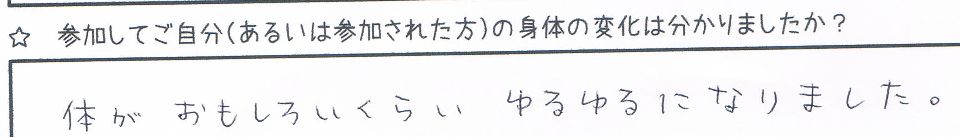 ☆ 参加してご自分(あるいは参加された方)の身体の変化は分かりましたか?
体が おもしろいくらい ゆるゆるになりました。